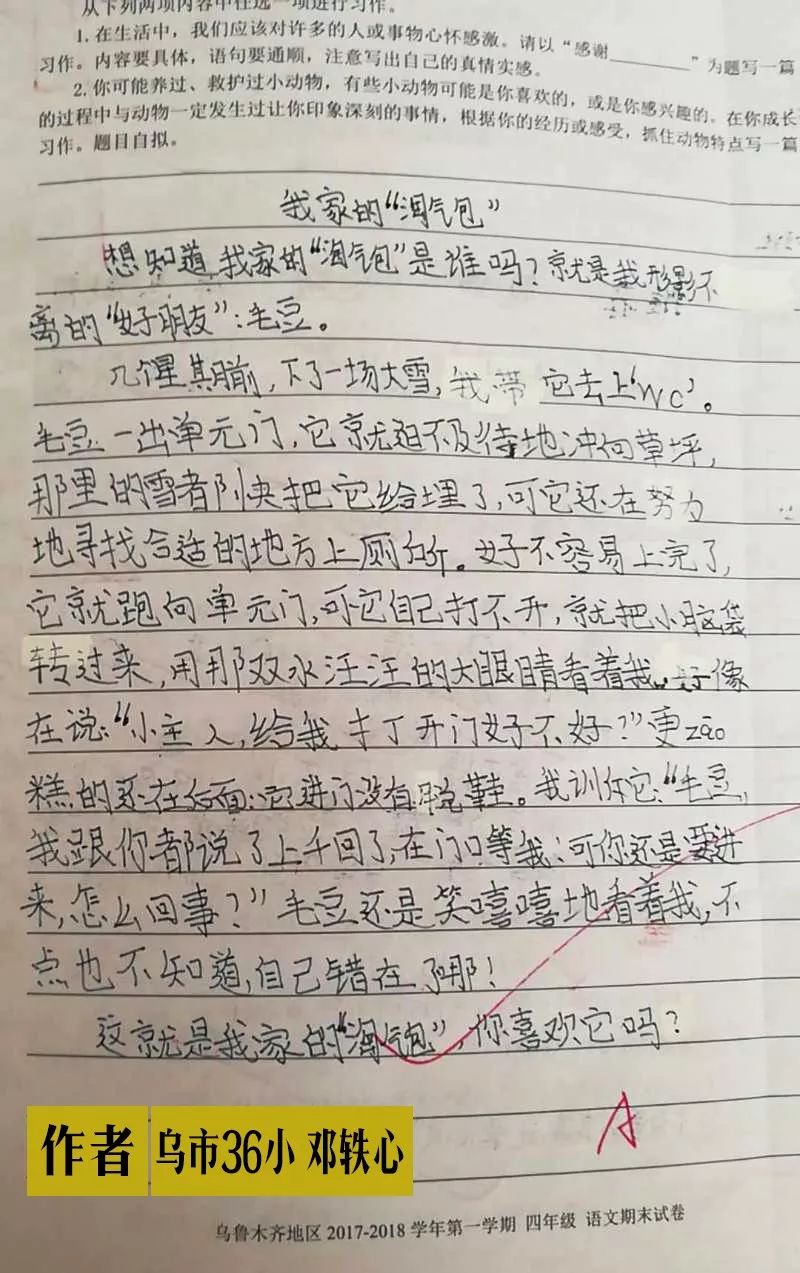 从下列两项内容中任选一项进行习作。
1. 在生活中，我们应该对许多的人或事物心怀感激。请以“感谢________”为题写一篇
习作。内容要具体，语句要通顺，注意写出自己的真情实感。
2. 你可能养过、救护过小动物，有些小动物可能是你喜欢的，或是你感兴趣的。在你成长
的过程中与动物一定发生过让你印象深刻的事情，根据你的经历或感受，抓住动物特点写一篇
习作。题目自拟。
我家的“淘气包”
想知道我家的“淘气包”是谁吗？就是我形影不
离的“好朋友”：毛豆。
几个星期前，下了一场大雪，我带它去上‘WC’。
毛豆一出单元门，它就迫不及待地冲向草坪，
那里的雪都快把它给埋了，可它还在努力
地寻找合适的地方上厕所。好不容易上完了，
它就跑向单元门，可它自己打不开，就把小脑袋
转过来，用那双水汪汪的大眼睛看着我，好像
在说：“小主人，给我打开门好不好？”更zāo
糕的还在后面：它进门没有脱鞋。我训斥它：“毛豆，
我跟你都说了上千回了，在门口等我；可你还是要进
来，怎么回事？”毛豆还是笑嘻嘻地看着我，不
点也不知道，自己错在了哪！
这就是我家的“淘气包”，你喜欢它吗？
A
作者 乌市36小 邓轶心
乌鲁木齐地区 2017-2018 学年第一学期 四年级 语文期末试卷